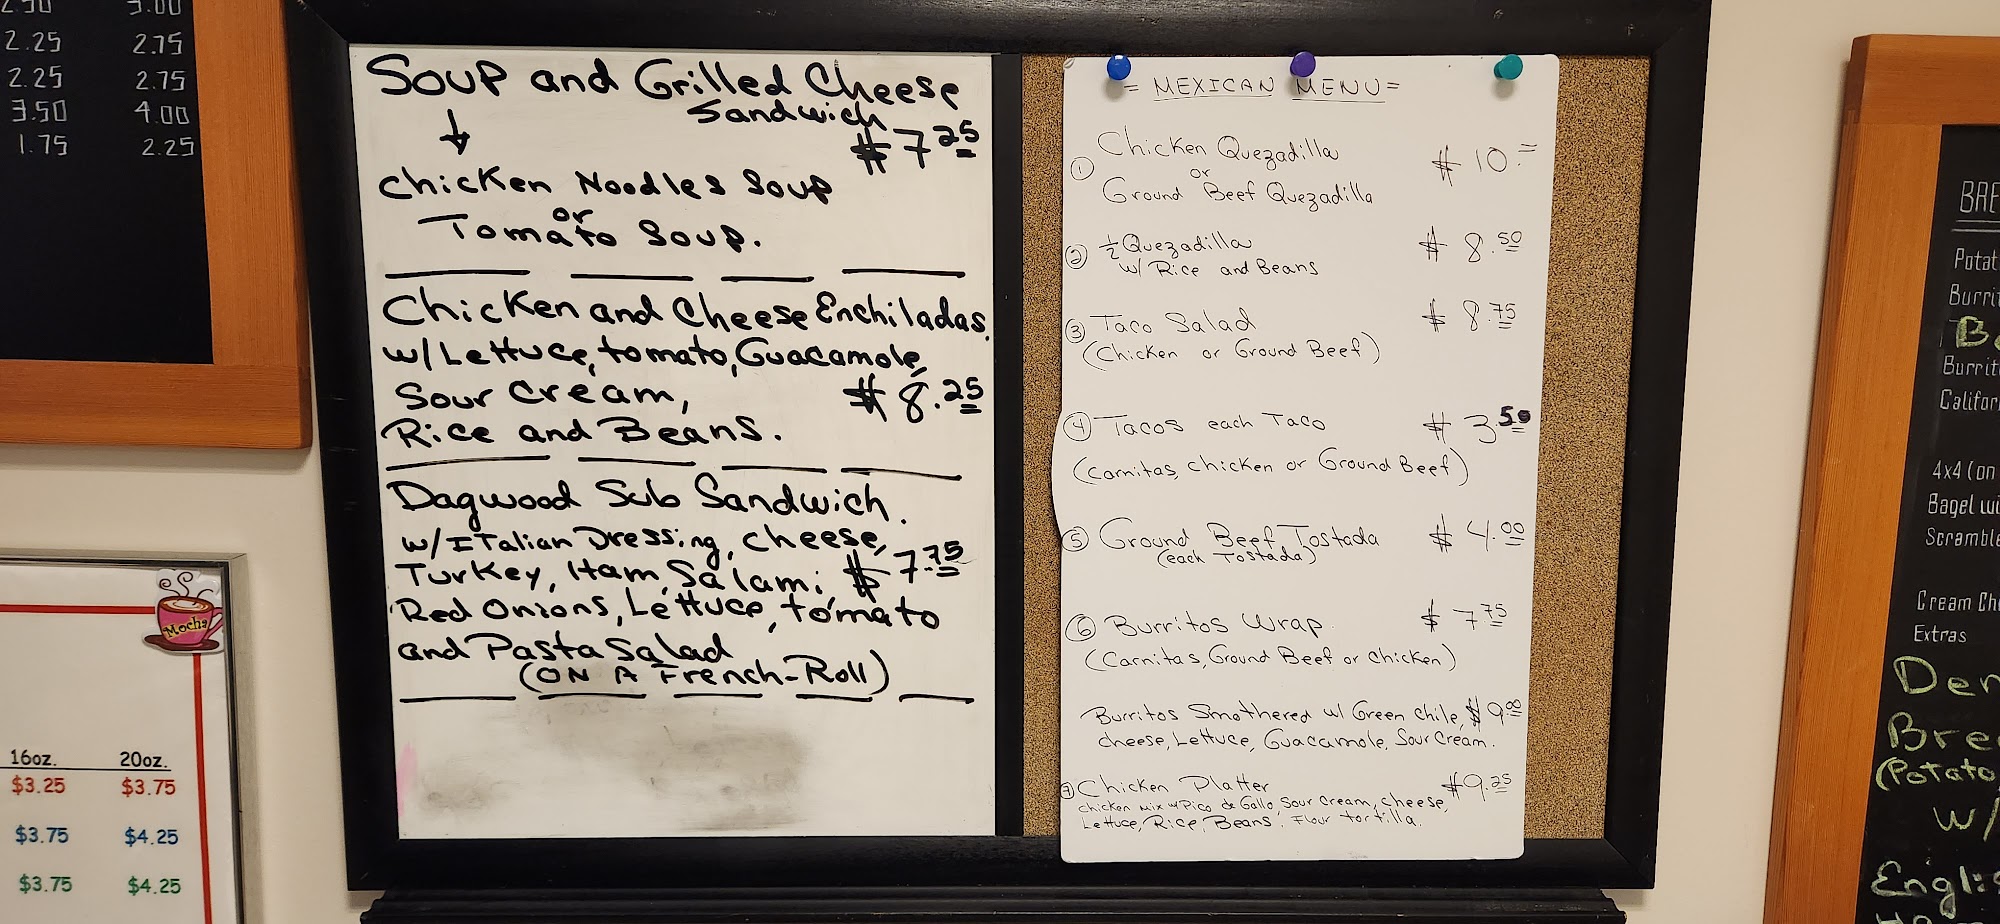 3.00
2.25 2.75
2.25 2.75
3.50 4.00
1.75 2.25
Mocha
16oz. 20oz.
$3.25 $3.75
$3.75 $4.25
$3.75 $4.25
Soup and Grilled Cheese
Sandwich
$7 25
Chicken Noodles Soup
or
Tomato Soup.
Chicken and Cheese Enchiladas.
w/Lettuce, tomato, Guacamole,
Sour Cream, $8.25
Rice and Beans.
Dagwood Sub Sandwich.
w/Italian Dressing, cheese,
Turkey, Ham, Salami, $7.75
Red Onions, Lettuce, tomato
and Pasta Salad
(ON A French-Roll)
= MEXICAN MENU =
① Chicken Quezadilla $10.=
or
Ground Beef Quezadilla
② ½ Quezadilla $8.50
w/ Rice and Beans
③ Taco Salad $8.75
(Chicken or Ground Beef)
④ Tacos each Taco $3.50
(Carnitas, chicken or Ground Beef)
⑤ Ground Beef Tostada $4.00
(each Tostada)
⑥ Burritos Wrap. $7.75
(Carnitas, Ground Beef or Chicken)
Burritos Smothered w/ Green Chile, $9.00
cheese, Lettuce, Guacamole, Sour Cream.
⑦ Chicken Platter $9.25
Chicken mix w/Pico de Gallo, Sour Cream, cheese,
Lettuce, Rice, Beans, Flour tortilla.
BRE
Potat
Burrit
Burrit
Califor
4x4 (on
Bagel wi
Scramble
Cream Ch
Extras
Den
Bre
(Potato
w/
Englis